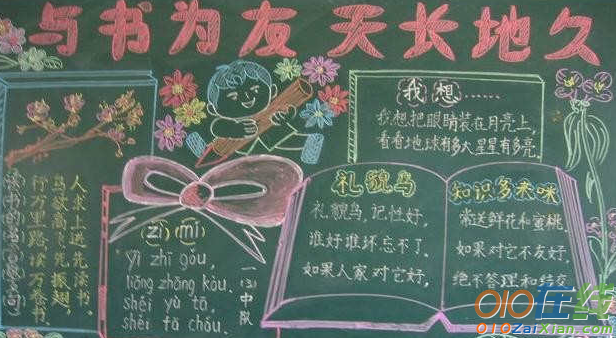 与书为友 天长地久
人求上进先读书，
鸟欲高飞先振翅。
行万里路读万卷书
(zì)(mí)
yì zhī gǒu,
liǎng zhāng kǒu.
shéi yù tā,
shéi fā chóu.
一(3)中队
我想……
我想把眼睛装在月亮上,
看看地球有多大星星有多亮.
礼貌鸟
礼貌鸟,记性好,
谁好谁坏忘不了.
如果人家对它好,
知识多来咪
常送鲜花和蜜桃.
如果对它不友好,
绝不答理和结交.
010在线
010ZaiXian.com